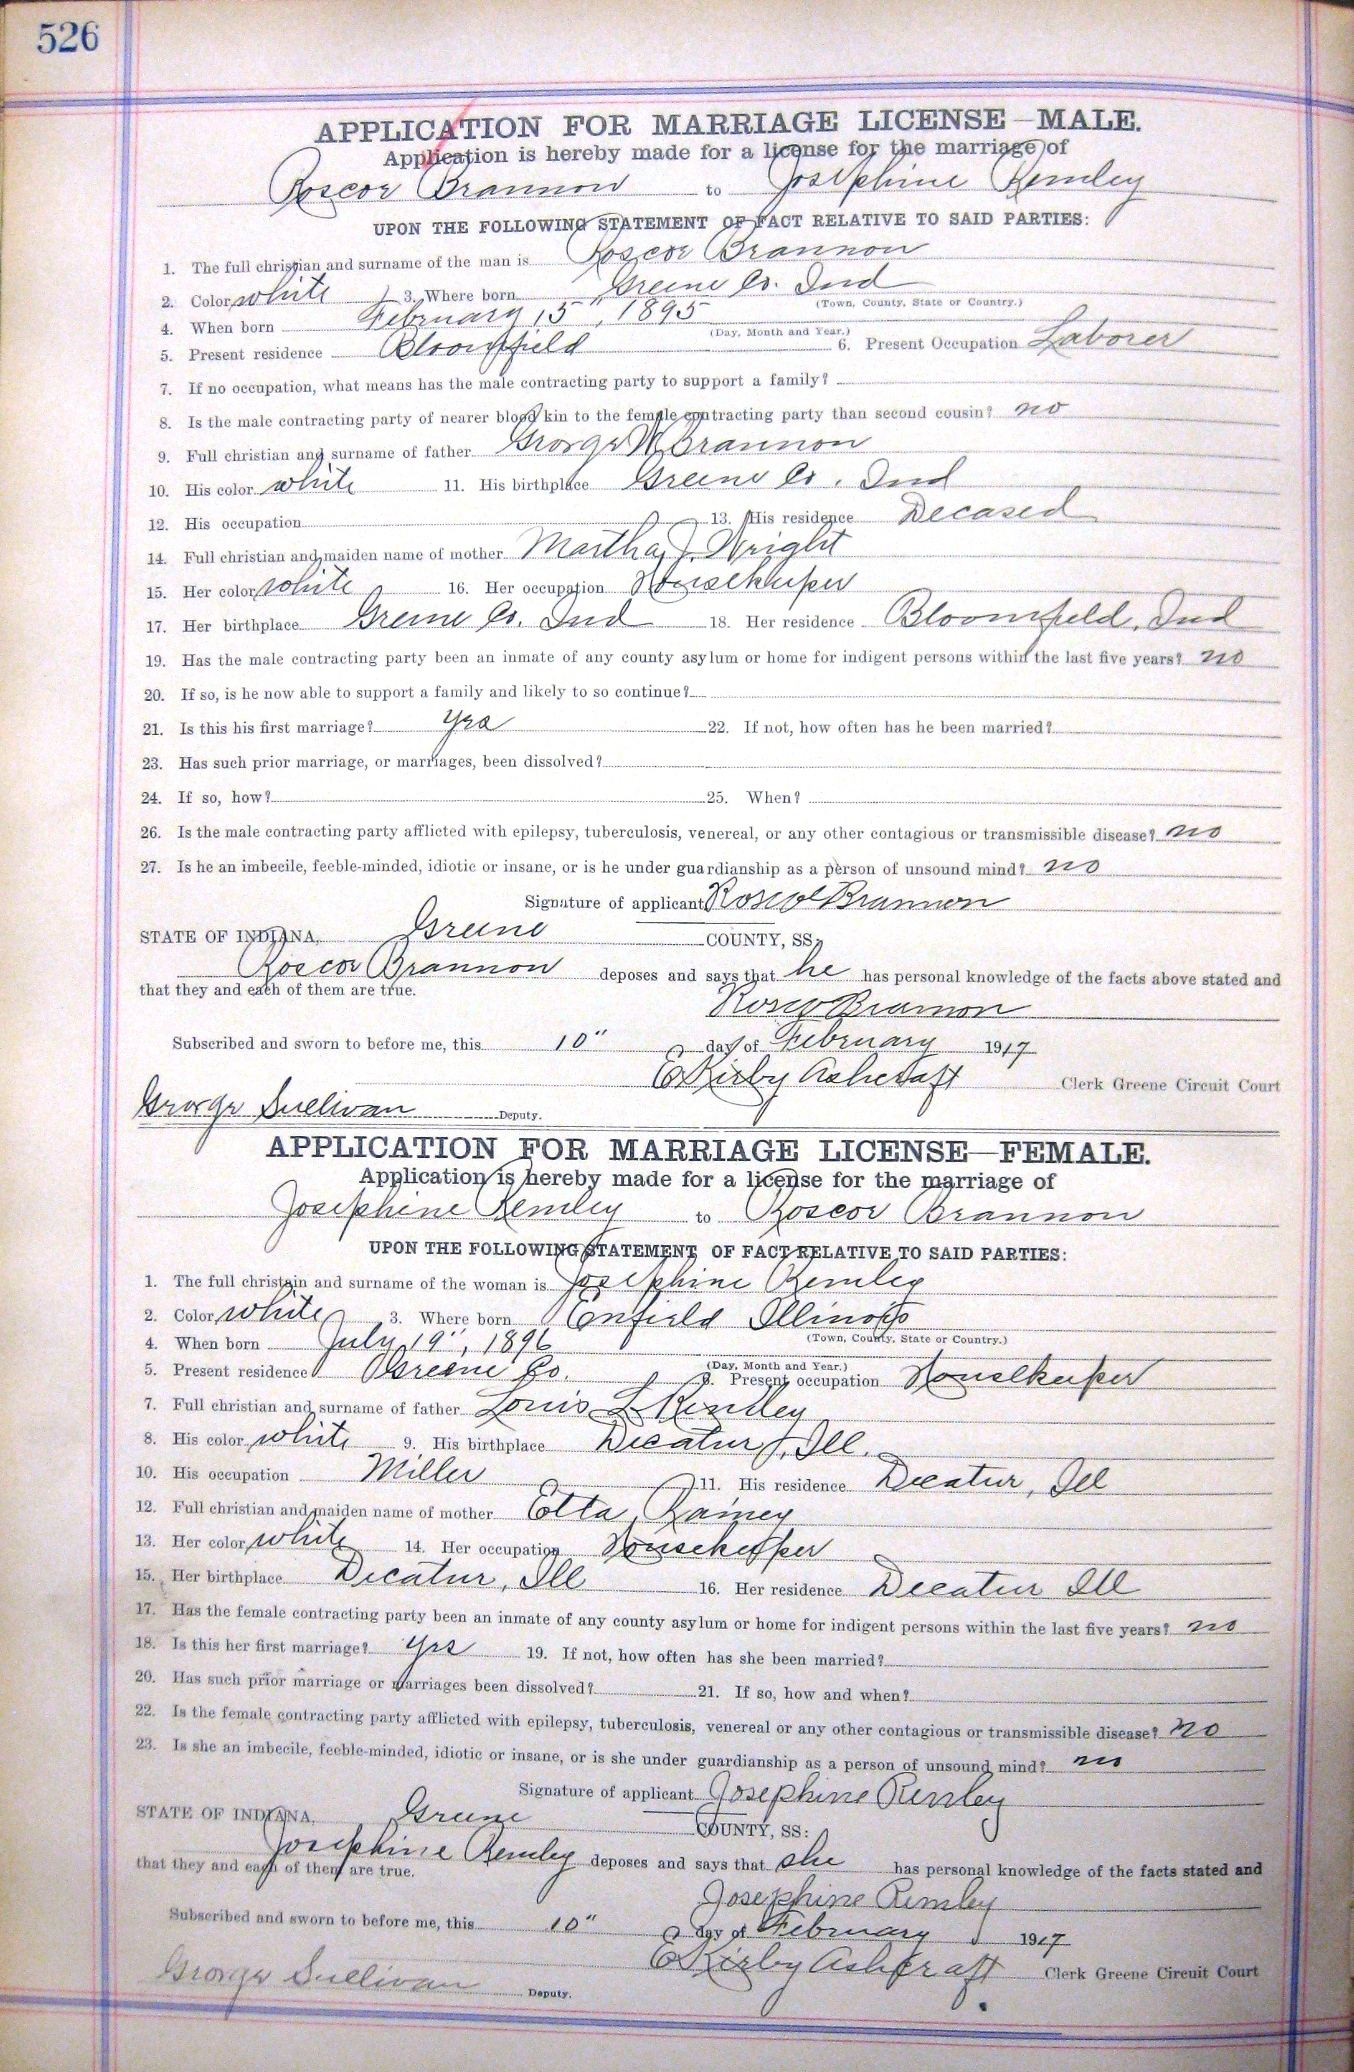 526
APPLICATION FOR MARRIAGE LICENSE—MALE.
Application is hereby made for a license for the marriage of
Roscoe Brannon to Josephine Remley
UPON THE FOLLOWING STATEMENT OF FACT RELATIVE TO SAID PARTIES:
1. The full christian and surname of the man is Roscoe Brannon
2. Color white 3. Where born Greene Co. Ind
(Town, County, State or Country.)
4. When born February 15", 1895
(Day, Month and Year.)
5. Present residence Bloomfield 6. Present Occupation Laborer
7. If no occupation, what means has the male contracting party to support a family?
8. Is the male contracting party of nearer blood kin to the female contracting party than second cousin? no
9. Full christian and surname of father George W Brannon
10. His color white 11. His birthplace Greene Co. Ind
12. His occupation 13. His residence Decased
14. Full christian and maiden name of mother Martha J. Wright
15. Her color white 16. Her occupation Housekeeper
17. Her birthplace Greene Co. Ind 18. Her residence Bloomfield, Ind
19. Has the male contracting party been an inmate of any county asylum or home for indigent persons within the last five years? no
20. If so, is he now able to support a family and likely to so continue?
21. Is this his first marriage? yes 22. If not, how often has he been married?
23. Has such prior marriage, or marriages, been dissolved?
24. If so, how? 25. When?
26. Is the male contracting party afflicted with epilepsy, tuberculosis, venereal, or any other contagious or transmissible disease? no
27. Is he an imbecile, feeble-minded, idiotic or insane, or is he under guardianship as a person of unsound mind? no
Signature of applicant Roscoe Brannon
STATE OF INDIANA, Greene COUNTY, SS:
Roscoe Brannon deposes and says that he has personal knowledge of the facts above stated and
that they and each of them are true.
Rosco Brannon
Subscribed and sworn to before me, this 10" day of February 1917
E Kirby Ashcraft Clerk Greene Circuit Court
George Sullivan Deputy.
APPLICATION FOR MARRIAGE LICENSE—FEMALE.
Application is hereby made for a license for the marriage of
Josephine Remley to Roscoe Brannon
UPON THE FOLLOWING STATEMENT OF FACT RELATIVE TO SAID PARTIES:
1. The full christain and surname of the woman is Josephine Remley
2. Color white 3. Where born Enfield Illinois
(Town, County, State or Country.)
4. When born July 19", 1896
(Day, Month and Year.)
5. Present residence Greene Co. 6. Present occupation Housekeeper
7. Full christian and surname of father Louis L Remley
8. His color white 9. His birthplace Decatur, Ill.
10. His occupation Miller 11. His residence Decatur, Ill
12. Full christian and maiden name of mother Etta Rainey
13. Her color white 14. Her occupation Housekeeper
15. Her birthplace Decatur, Ill 16. Her residence Decatur Ill
17. Has the female contracting party been an inmate of any county asylum or home for indigent persons within the last five years? no
18. Is this her first marriage? yes 19. If not, how often has she been married?
20. Has such prior marriage or marriages been dissolved? 21. If so, how and when?
22. Is the female contracting party afflicted with epilepsy, tuberculosis, venereal or any other contagious or transmissible disease? no
23. Is she an imbecile, feeble-minded, idiotic or insane, or is she under guardianship as a person of unsound mind? no
Signature of applicant Josephine Remley
STATE OF INDIANA, Greene COUNTY, SS:
Josephine Remley deposes and says that she has personal knowledge of the facts stated and
that they and each of them are true.
Josephine Remley
Subscribed and sworn to before me, this 10" day of February 1917
E Kirby Ashcraft Clerk Greene Circuit Court
George Sullivan Deputy.